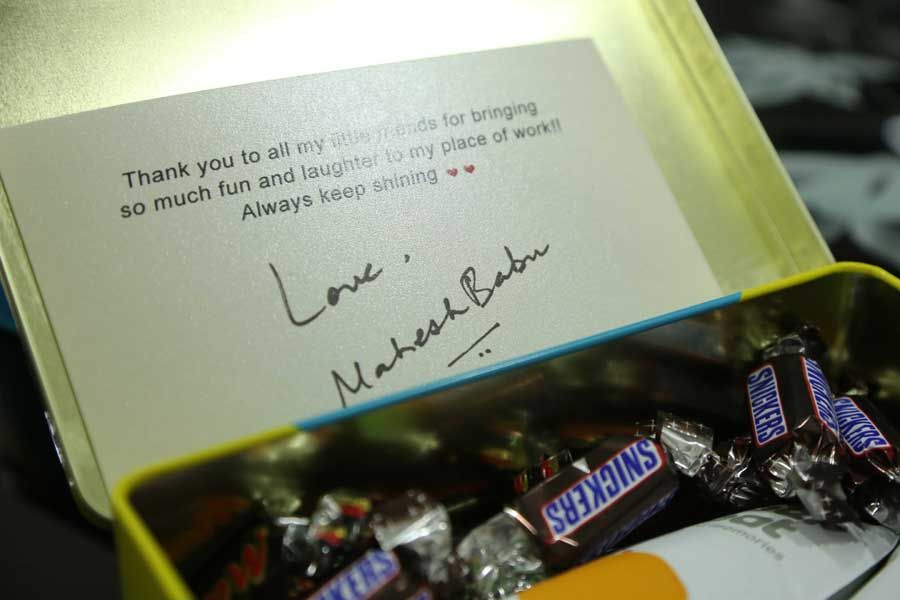 Thank you to all my little friends for bringing
so much fun and laughter to my place of work!!
Always keep shining ❤❤
Love,
Mahesh Babu
SNICKERS
SNICKERS
SNICKERS
SNICKERS
SNICKERS